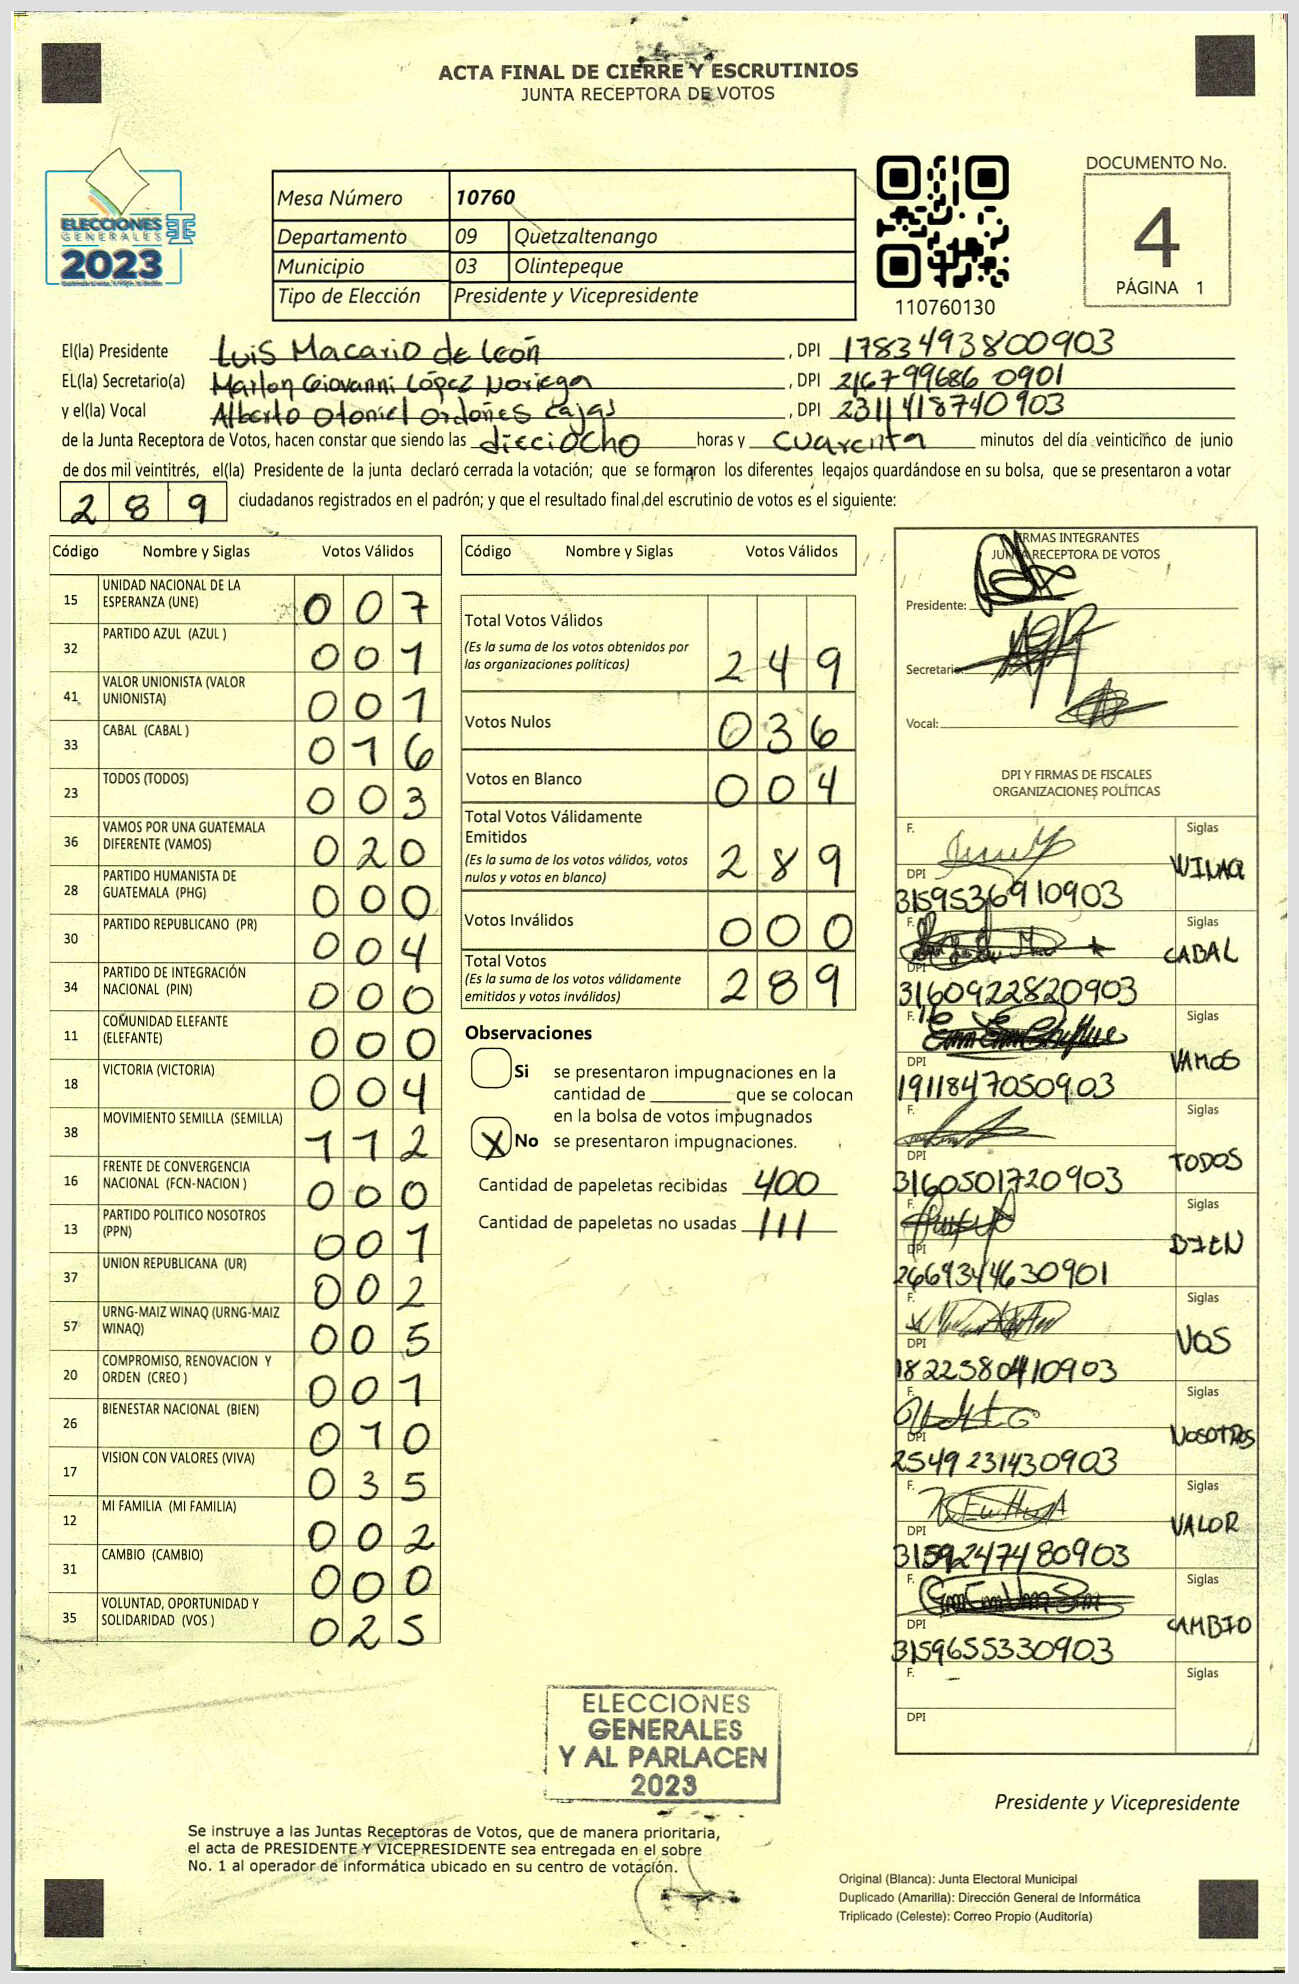 ACTA FINAL DE CIERRE Y ESCRUTINIOS
JUNTA RECEPTORA DE VOTOS
ELECCIONES
GENERALES
2023
Mesa Número 10760
Departamento 09 Quetzaltenango
Municipio 03 Olintepeque
Tipo de Elección Presidente y Vicepresidente
110760130
DOCUMENTO No.
4
PÁGINA 1
El(la) Presidente Luis Macario de León , DPI 1783493800903
EL(la) Secretario(a) Marlon Giovanni López Noriega , DPI 2167996860901
y el(la) Vocal Alberto Otoniel Ordoñes Cajas , DPI 2311418740903
de la Junta Receptora de Votos, hacen constar que siendo las dieciocho horas y cuarenta minutos del día veinticinco de junio
de dos mil veintitrés, el(la) Presidente de la junta declaró cerrada la votación; que se formaron los diferentes legajos guardándose en su bolsa, que se presentaron a votar
289 ciudadanos registrados en el padrón; y que el resultado final del escrutinio de votos es el siguiente:
Código Nombre y Siglas Votos Válidos
15 UNIDAD NACIONAL DE LA ESPERANZA (UNE) 007
32 PARTIDO AZUL (AZUL ) 001
41 VALOR UNIONISTA (VALOR UNIONISTA) 001
33 CABAL (CABAL ) 016
23 TODOS (TODOS) 003
36 VAMOS POR UNA GUATEMALA DIFERENTE (VAMOS) 020
28 PARTIDO HUMANISTA DE GUATEMALA (PHG) 000
30 PARTIDO REPUBLICANO (PR) 004
34 PARTIDO DE INTEGRACIÓN NACIONAL (PIN) 000
11 COMUNIDAD ELEFANTE (ELEFANTE) 000
18 VICTORIA (VICTORIA) 004
38 MOVIMIENTO SEMILLA (SEMILLA) 112
16 FRENTE DE CONVERGENCIA NACIONAL (FCN-NACION ) 000
13 PARTIDO POLITICO NOSOTROS (PPN) 001
37 UNION REPUBLICANA (UR) 002
57 URNG-MAIZ WINAQ (URNG-MAIZ WINAQ) 005
20 COMPROMISO, RENOVACION Y ORDEN (CREO ) 001
26 BIENESTAR NACIONAL (BIEN) 010
17 VISION CON VALORES (VIVA) 035
12 MI FAMILIA (MI FAMILIA) 002
31 CAMBIO (CAMBIO) 000
35 VOLUNTAD, OPORTUNIDAD Y SOLIDARIDAD (VOS ) 025
Código Nombre y Siglas Votos Válidos
Total Votos Válidos 249
(Es la suma de los votos obtenidos por
las organizaciones políticas)
Votos Nulos 036
Votos en Blanco 004
Total Votos Válidamente
Emitidos 289
(Es la suma de los votos válidos, votos
nulos y votos en blanco)
Votos Inválidos 000
Total Votos 289
(Es la suma de los votos válidamente
emitidos y votos inválidos)
Observaciones
Si se presentaron impugnaciones en la
cantidad de ________ que se colocan
en la bolsa de votos impugnados
X No se presentaron impugnaciones.
Cantidad de papeletas recibidas 400
Cantidad de papeletas no usadas 111
FIRMAS INTEGRANTES
JUNTA RECEPTORA DE VOTOS
Presidente:
Secretario:
Vocal:
DPI Y FIRMAS DE FISCALES
ORGANIZACIONES POLÍTICAS
F. Siglas WINAQ
DPI 3159536910903
F. Siglas CABAL
DPI 3160922820903
F. Siglas VAMOS
DPI 1911847050903
F. Siglas TODOS
DPI 3160501720903
F. Siglas BIEN
DPI 2669344630901
F. Siglas VOS
DPI 1822580410903
F. Siglas NOSOTROS
DPI 2549231430903
F. Siglas VALOR
DPI 3159247480903
F. Siglas CAMBIO
DPI 3159655330903
F. Siglas
DPI
ELECCIONES
GENERALES
Y AL PARLACEN
2023
Presidente y Vicepresidente
Se instruye a las Juntas Receptoras de Votos, que de manera prioritaria,
el acta de PRESIDENTE Y VICEPRESIDENTE sea entregada en el sobre
No. 1 al operador de informática ubicado en su centro de votación.
Original (Blanca): Junta Electoral Municipal
Duplicado (Amarilla): Dirección General de Informática
Triplicado (Celeste): Correo Propio (Auditoría)